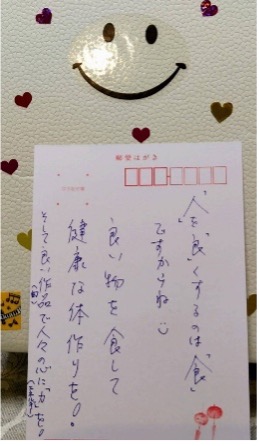 郵便はがき
"人"を"良"くするのは"食"
ですからね
良い物を食して
健康な体作りを!。
そして良い作品で人々の心に"力"を!